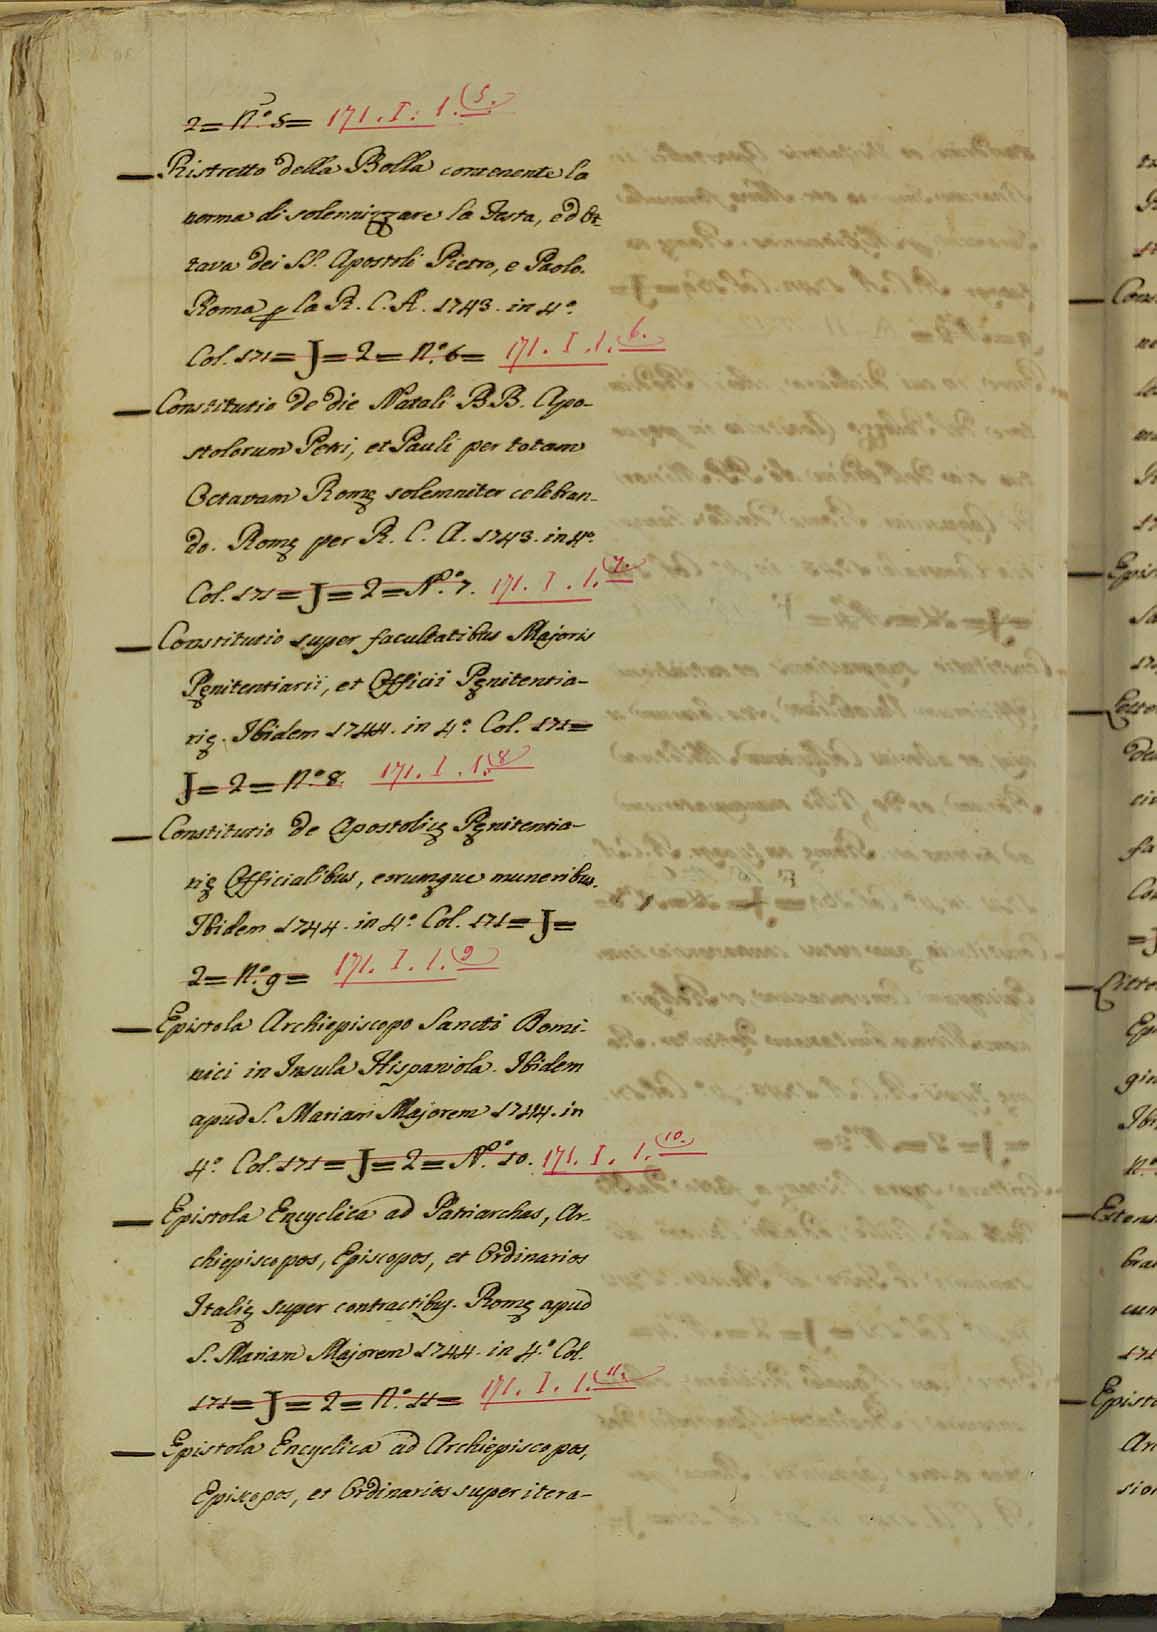 2 = N.º 5 = 171. I. 1. (5.
— Ristretto della Bolla contenente la
norma di solennizzare la Festa, ed Ot-
tava dei SS. Apostoli Pietro, e Paolo.
Roma p la R. C. A. 1743. in 4º
Col. 171 = J = 2 = N.º 6 = 171. I. 1. (6.
— Constitutio de die Natali BB. Apo-
stolorum Petri, et Pauli per totam
Octavam Romę solemniter celebran-
do. Romę per R. C. A. 1743. in 4º
Col. 171 = J = 2 = N.º 7. 171. I. 1. (7.
— Constitutio super facultatibus Majoris
Pęnitentiarii, et Officii Pęnitentia-
rię. Ibidem 1744. in 4º Col. 171 =
J = 2 = N.º 8. 171. I. 1. (8
— Constitutio de Apostolicę Pęnitentia-
rię Officialibus, eorumque muneribus.
Ibidem 1744. in 4º Col. 171 = J =
2 = N.º 9 = 171. I. 1. (9
— Epistola Archiepiscopo Sancti Domi-
nici in Insula Hispaniola. Ibidem
apud S. Mariam Majorem 1744. in
4º Col. 171 = J = 2 = N.º 10. 171. I. 1. (10.
— Epistola Encyclica ad Patriarchas, Ar-
chiepiscopos, Episcopos, et Ordinarios
Italię super contractibus. Romę apud
S. Mariam Majorem 1744. in 4º Col.
171 = J = 2 = N.º 11 = 171. I. 1. (11.
— Epistola Encyclica ad Archiepiscopos,
Episcopos, et Ordinarios super itera-